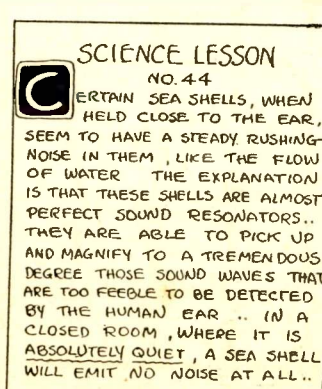 SCIENCE LESSON
NO. 44
CERTAIN SEA SHELLS, WHEN
HELD CLOSE TO THE EAR,
SEEM TO HAVE A STEADY RUSHING
NOISE IN THEM, LIKE THE FLOW
OF WATER THE EXPLANATION
IS THAT THESE SHELLS ARE ALMOST
PERFECT SOUND RESONATORS..
THEY ARE ABLE TO PICK UP
AND MAGNIFY TO A TREMENDOUS
DEGREE THOSE SOUND WAVES THAT
ARE TOO FEEBLE TO BE DETECTED
BY THE HUMAN EAR .. IN A
CLOSED ROOM, WHERE IT IS
ABSOLUTELY QUIET, A SEA SHELL
WILL EMIT NO NOISE AT ALL..